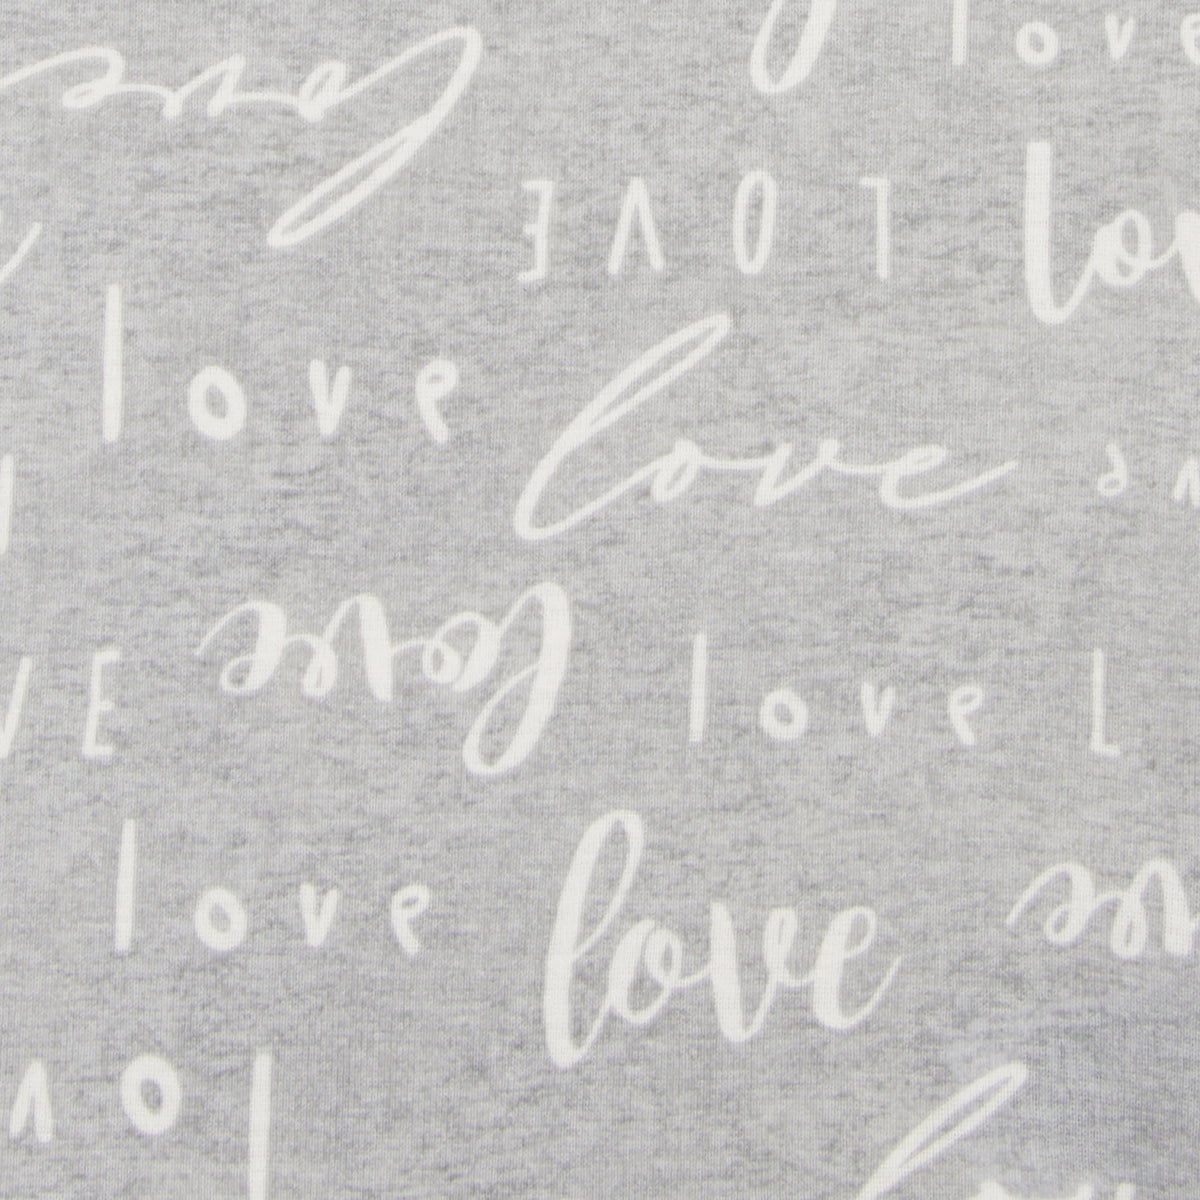 love
love
LOVE
lov
love
love
love
love
L
VE
love
love
lov